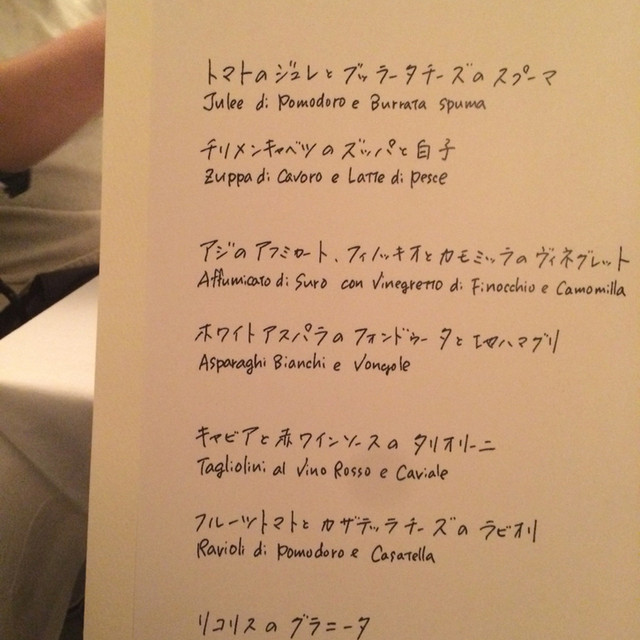 トマトのジュレとブッラータチーズのスプーマ
Julee di Pomodoro e Burrata spuma
チリメンキャベツのズッパと白子
Zuppa di Cavoro e Latte di pesce
アジのアフミカート、フィノッキオとカモミッラのヴィネグレット
Affumicato di Suro con Vinegretto di Finocchio e Camomilla
ホワイトアスパラのフォンドゥータとハマグリ
Asparaghi Bianchi e Vongole
キャビアと赤ワインソースのタリオリーニ
Tagliolini al Vino Rosso e Caviale
フルーツトマトとカザテッラチーズのラビオリ
Ravioli di Pomodoro e Casatella
リコリスのグラニータ